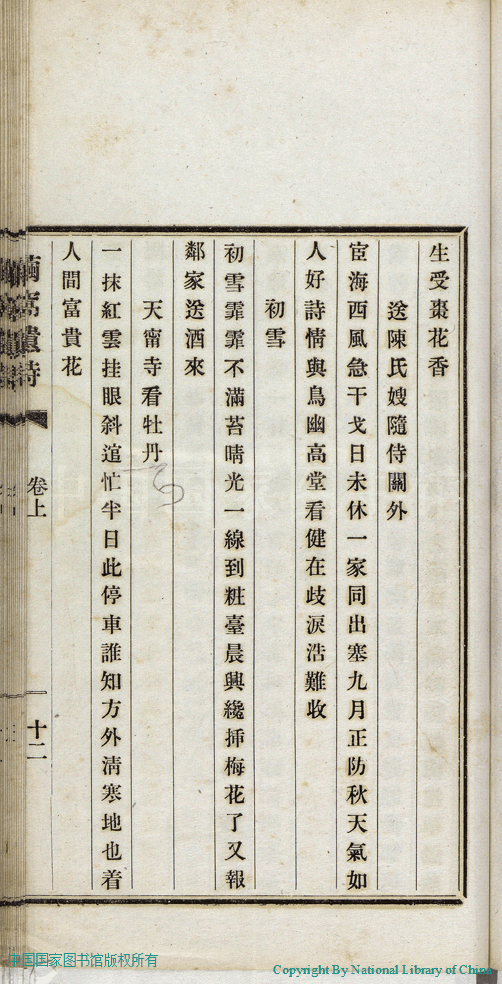 生受棗花香
送陳氏嫂隨侍關外
宦海西風急干戈日未休一家同出塞九月正防秋天氣如
人好詩情與鳥幽高堂看健在歧淚浩難收
初雪
初雪霏霏不滿苔晴光一線到粧臺晨興纔揷梅花了又報
鄰家送酒來
天甯寺看牡丹
一抹紅雲挂眼斜逭忙半日此停車誰知方外清寒地也着
人間富貴花
卷上
十二
中国国家图书馆版权所有
Copyright By National Library of China